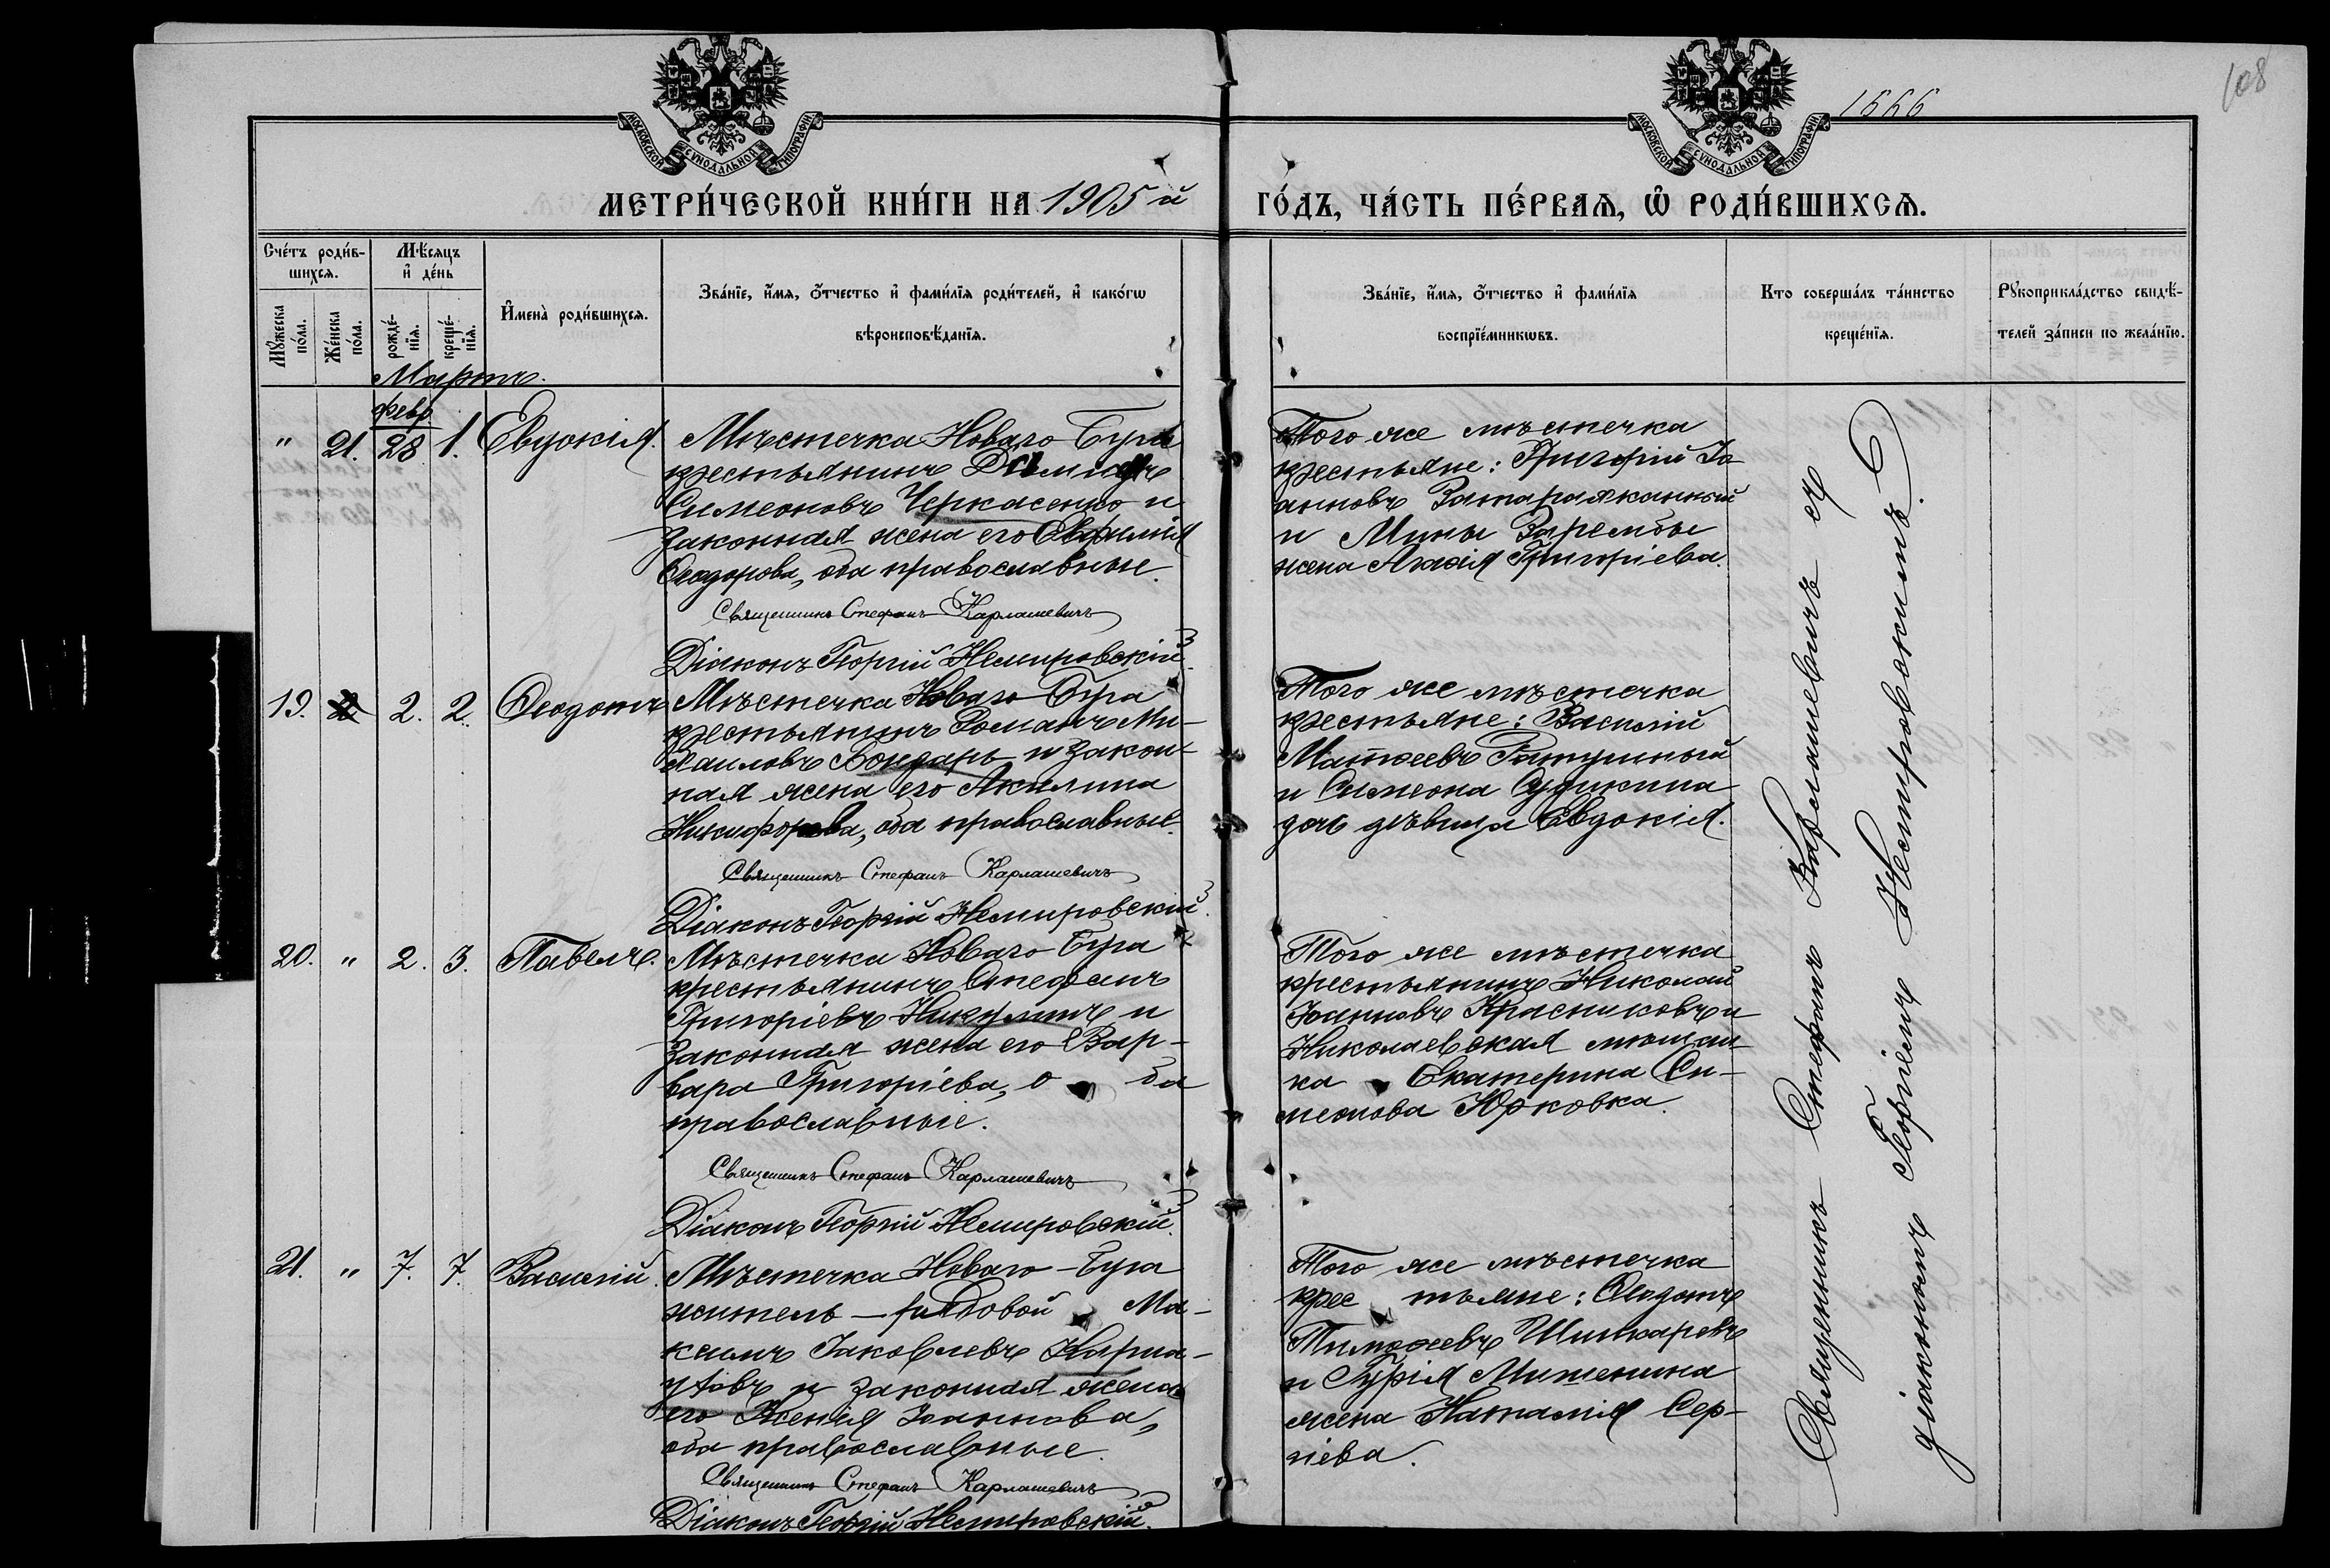 108
1666
МОСКОВСКОЙ СѴНОДАЛЬНОЙ ТИПОГРАФІИ
МОСКОВСКОЙ СѴНОДАЛЬНОЙ ТИПОГРАФІИ
МЕТРИ́ЧЕСКОЙ КНИ́ГИ НА 1905 й
ГО́ДЪ, ЧА́СТЬ ПЕ́РВАѦ, Ѽ РОДИ́ВШИХСѦ.
Сче́тъ роди́в-
шихсѧ.
Мѣ́сѧцъ
и҆ де́нь
Мꙋ́жеска
по́ла.
Же́нска
по́ла.
рожде́-
нїѧ.
креще́-
нїѧ.
И҆мена̀ роди́вшихсѧ.
Зва́нїе, и҆́мѧ, ѻ҆́тчество и҆ фами́лїѧ роди́телей, и҆ како́гѡ
вѣроисповѣ́данїѧ.
Зва́нїе, и҆́мѧ, ѻ҆́тчество и҆ фами́лїѧ
воспрїе́мникѡвъ.
Кто соверша́лъ та́инство
креще́нїѧ.
Рꙋкоприкла́дство свидѣ́-
телей за́писи по жела́нїю.
Мартъ.
февр
" 21. 28 1. Евдокія.
Мѣстечка Новаго Буга
крестьянинъ Даміанъ
Симеоновъ Черкасенко и
законная жена его Евфимія
Ѳеодорова, оба православные.
Священникъ Стефанъ Карлашевичъ
Діаконъ Георгій Немировскій.
Того же мѣстечка
крестьяне: Григорій Іо
анновъ Затаражканный
и Мины Зарембы
жена Агаѳія Григоріева.
19. 2. 2. Ѳеодотъ
Мѣстечка Новаго Буга
крестьянинъ Романъ Ми-
хаиловъ Бондарь и закон-
ная жена его Акилина
Никифорова, оба православные.
Священникъ Стефанъ Карлашевичъ
Діаконъ Георгій Немировскій.
Того же мѣстечка
крестьяне: Василій
Матѳеевъ Ратушный
и Симеона Судикина
дочь дѣвица Евдокія.
20. " 2. 3. Павелъ.
Мѣстечка Новаго Буга
крестьянинъ Стефанъ
Григоріевъ Никулинъ и
законная жена его Вар-
вара Григоріева, о ба
православные.
Священникъ Стефанъ Карлашевичъ
Діаконъ Георгій Немировскій.
Того же мѣстечка
крестьянинъ Николай
Іоанновъ Красниковъ и
Николаевская мѣщан-
ка Екатерина Си-
меонова Юрковка.
21. " 7. 7. Василій.
Мѣстечка Новаго Буга
житель - рядовой Ма-
ксимъ Іаковлевъ Карна-
уховъ и законная жена
его Ксенія Іоаннова,
оба православные.
Священникъ Стефанъ Карлашевичъ
Діаконъ Георгій Немировскій.
Того же мѣстечка
крес тьяне: Ѳеодотъ
Тимоѳеевъ Шишкаревъ
и Гурія Мишенина
жена Наталія Сер-
гіева.
Священникъ Стефанъ Карлашевичъ съ
діакономъ Георгіемъ Немировскимъ.